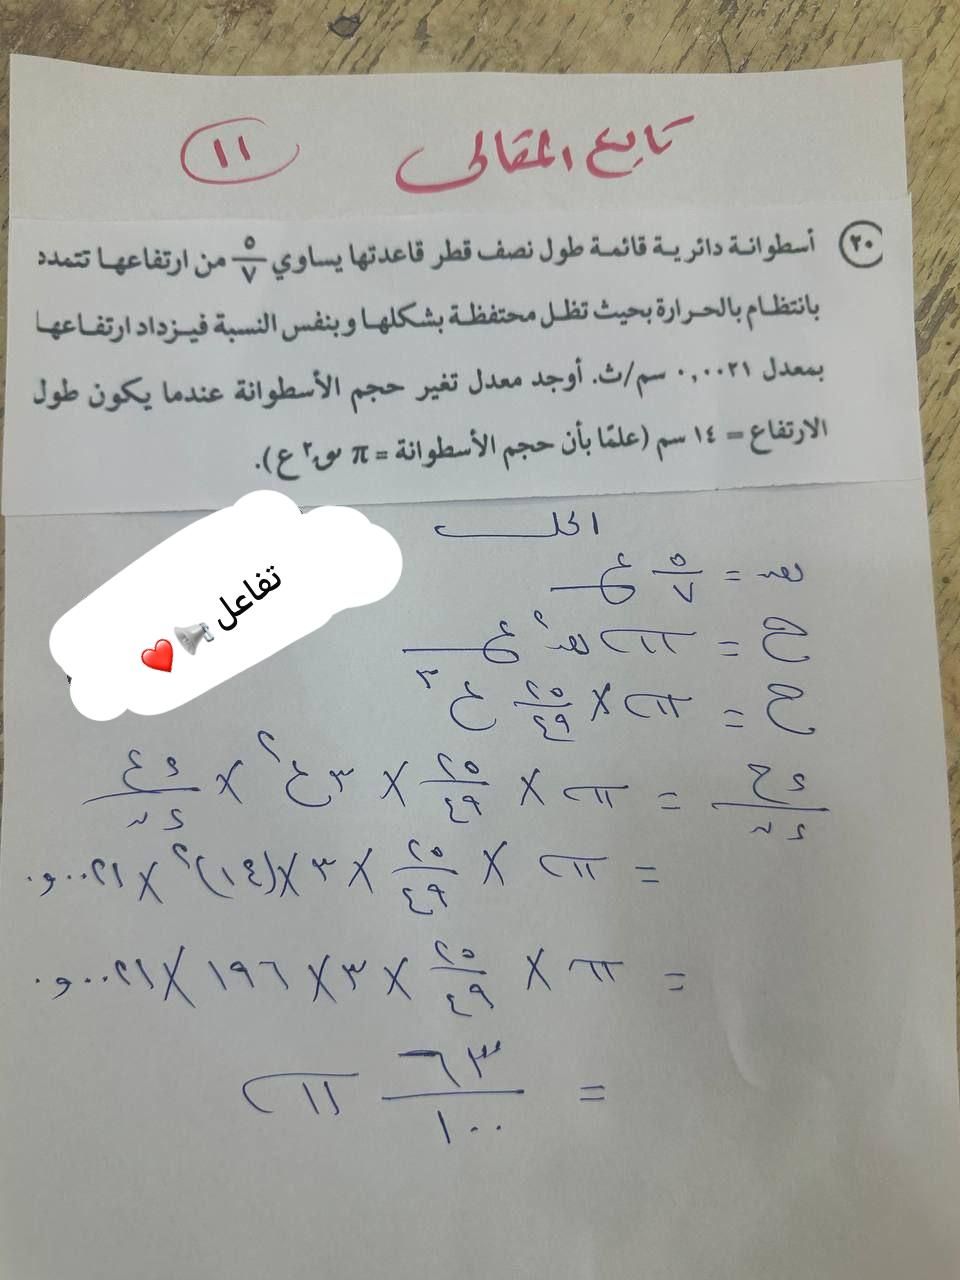 تابع المقالى ١١
٢٠ أسطوانة دائرية قائمة طول نصف قطر قاعدتها يساوي ٥/٧ من ارتفاعها تتمدد
بانتظام بالحرارة بحيث تظل محتفظة بشكلها وبنفس النسبة فيزداد ارتفاعها
بمعدل ٠,٠٠٢١ سم/ث. أوجد معدل تغير حجم الأسطوانة عندما يكون طول
الارتفاع = ١٤ سم (علمًا بأن حجم الأسطوانة = π نق٢ ع).
الحل
تفاعل 📢❤️
نق = ٥/٧ ع
ح = π نق٢ ع
ح = π × ٢٥/٤٩ ع٣
ءح/ءن = π × ٢٥/٤٩ × ٣ع٢ × ءع/ءن
= π × ٢٥/٤٩ × ٣ × (١٤)٢ × ٠,٠٠٢١
= π × ٢٥/٤٩ × ٣ × ١٩٦ × ٠,٠٠٢١
= ٦٣/١٠٠ π